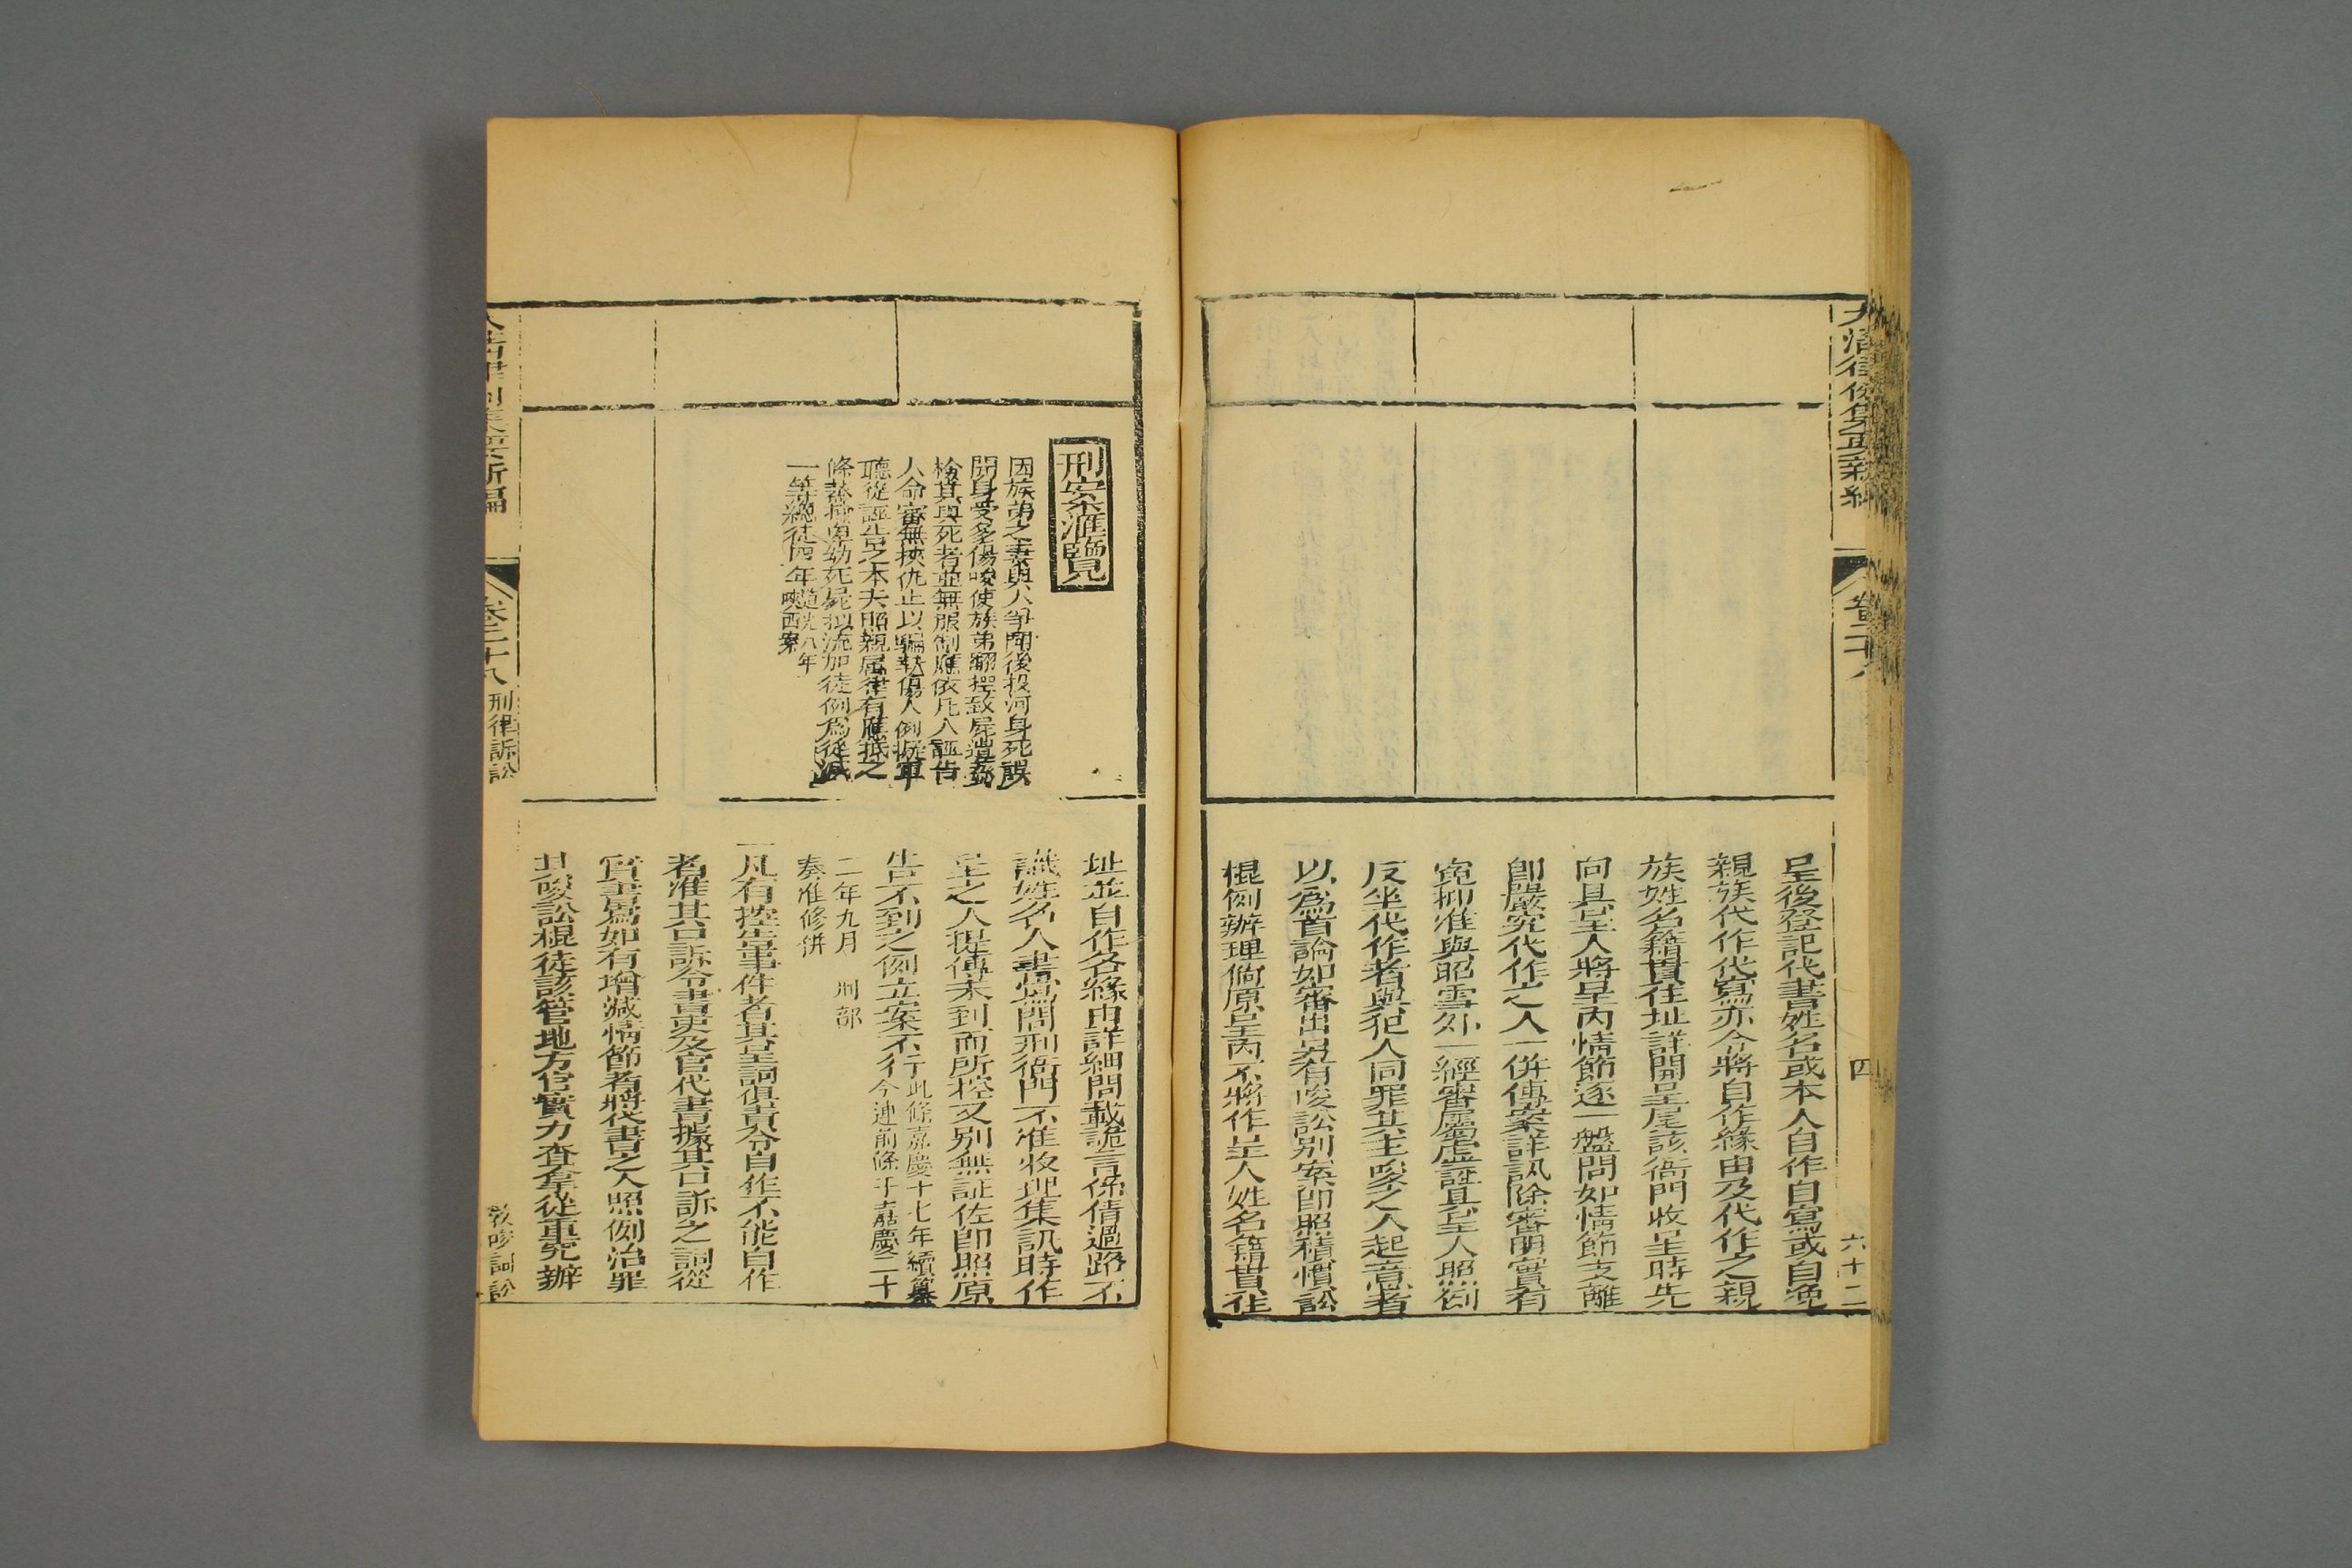 呈後登記代書姓名或本人自作自寫或自
親族代作代寫亦令將自作緣由及代作之親
族姓名籍貫住址詳開呈尾該衙門收呈時先
向具呈人將呈內情節逐一盤問如情節支離
卽嚴究代作之人一併傳案詳訊除審明實有
寃抑准與昭雪外一經審屬虛誣具呈人照例
反坐代作者與犯人同罪其主唆之人起意者
以爲首論如審出另有唆訟別案卽照積慣訟
棍例辦理倘原呈內不將作呈人姓名籍貫住
四
六十二
刑案滙覽
因族弟之妻與人爭鬧後投河身死誤
開身受多傷唆使族弟翻控致屍遭蒸
檢其與死者並無服制應依凡人誣告
人命審無挾仇止以騙執傷人例擬軍
聽從誣告之本夫照親屬律有應抵之
條蒸檢卑幼死屍擬流加徒例爲從減
一等總徒四年道光八年陝西案
址並自作各緣由詳細問載詭言係倩過路不
識姓名人書寫問刑衙門不准收理集訊時作
呈之人提傳未到而所控又別無証佐卽照原
告不到之例立案不行此條嘉慶十七年續纂今連前條于嘉慶二十
二年九月 刑部
奏准修併
一凡有控告事件者其呈詞俱責令自作不能自作
者准其口訴令書吏及官代書據其口訴之詞從
實書寫如有增減情節者將代書之人照例治罪
其唆訟棍徒該管地方官實力查拿從重究辦
卷三十八
刑律訴訟
教唆詞訟